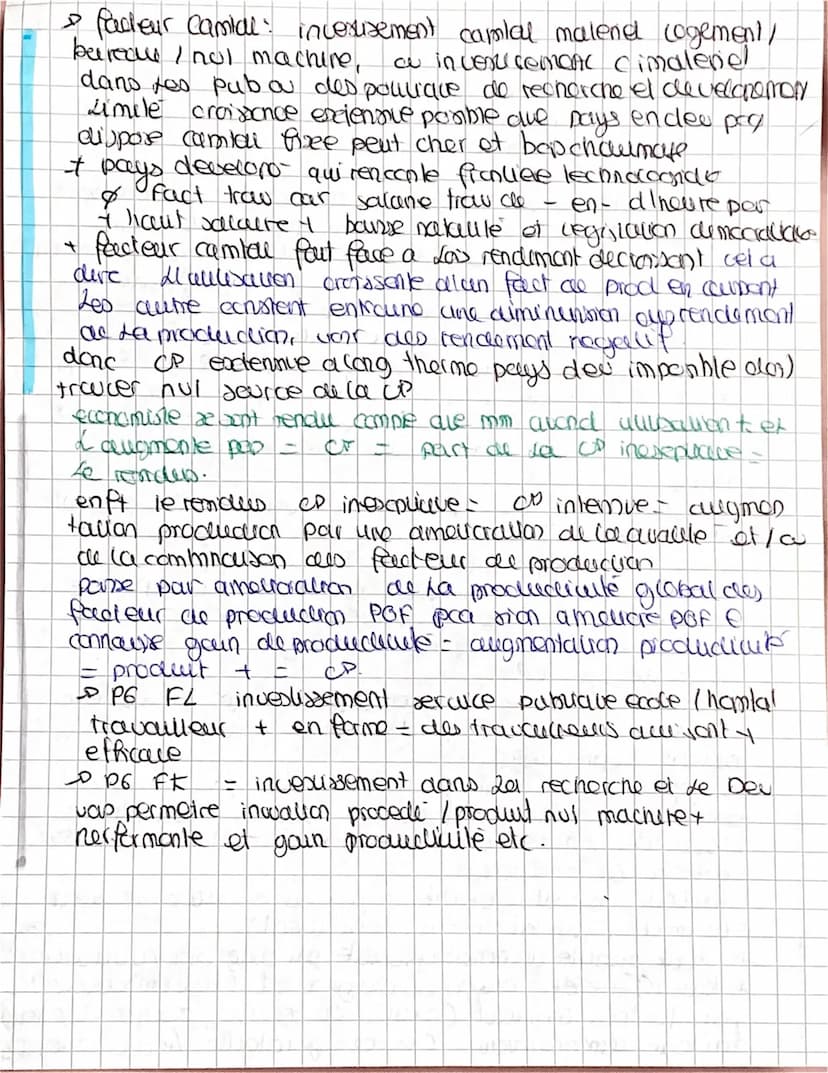 → facteur capital : investissement capital materiel logement /
bureaus / nvl machine, ou investissement immateriel
dans les pub ou des politique de recherche et developpement
limite croissance extensive possible que pays en dev pcq
dispose capital fixe peut cher et bcp chaumage
+ pays develorp- qui rencontre frontiere technologique
∅ fact trav car salarie trav de - en - d'heure par
+ haut salaire + baisse natalité et legislation democratique
+ facteur capital fait face a lois rendement decroissant cela
dire l'utilisation croissante d'un fact de prod en laissant
les autre constent entraine une diminension du rendement
de la production, voir des rendement negatif
donc CP extensive a long therme pays dev imposible alors
trouver nvl source de la CP
economiste se sont rendu compte que mm quand utilisation + et
L augmente peo = CF = part de la CP inexpliquée =
le residus.
enft le residus CP inexplique = CP intensive = augmen
tation production par une amelioration de la qualité et / ou
de la combinaison des facteur de production
passe par amelioration de la productivité global des
facteur de production PGF pcq sion ameliore PGF €
connaisse gain de productivité = augmentation productivité
= produit + = CP.
→ PG FL investissement service publique ecole / hopital
travailleur + en forme = des travailleurs qui sont +
efficace
→ PG FK = investissement dans la recherche et le Dev
vas permetre inovation procedé / produit nvl machine +
performante et gain productivité etc.